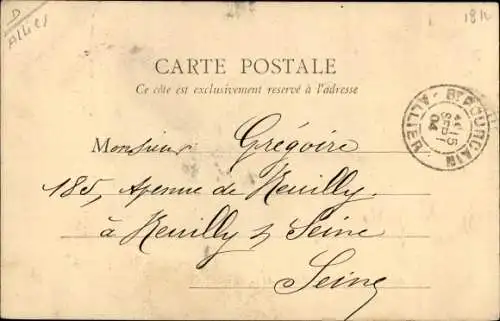 D
Allier
CARTE POSTALE
Ce côté est exclusivement reservé à l'adresse
Monsieur Grégoire
185, Avenue de Neuilly
à Neuilly s/ Seine
Seine
POURÇAIN
15
SEPT
04
ALLIER